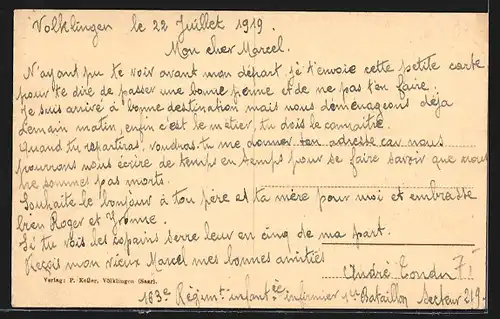 Volklingen le 22 Juillet 1919.
Mon cher Marcel.
N'ayant pu te voir avant mon départ, je t'envoie cette petite carte
pour te dire de passer une bonne perme et de ne pas t'en faire.
Je suis arrivé à bonne destination mais nous déménageons déja
demain matin, enfin c'est le métier, tu dois le connaitre.
Quand tu repartiras, voudras tu me donner ton adresse car nous
pourrons nous écrire de temps en temps pour se faire savoir que nous
ne sommes pas morts.
Souhaite le bonjour à ton père et ta mère pour moi et embrasse
bien Roger et Yvonne.
Si tu vois les copains serre leur en cinq de ma part.
Reçois mon vieux Marcel mes bonnes amitiés
André
Verlag: P. Keller, Völklingen (Saar).
163e Régimt infantie infirmier 1er Bataillon Secteur 219.